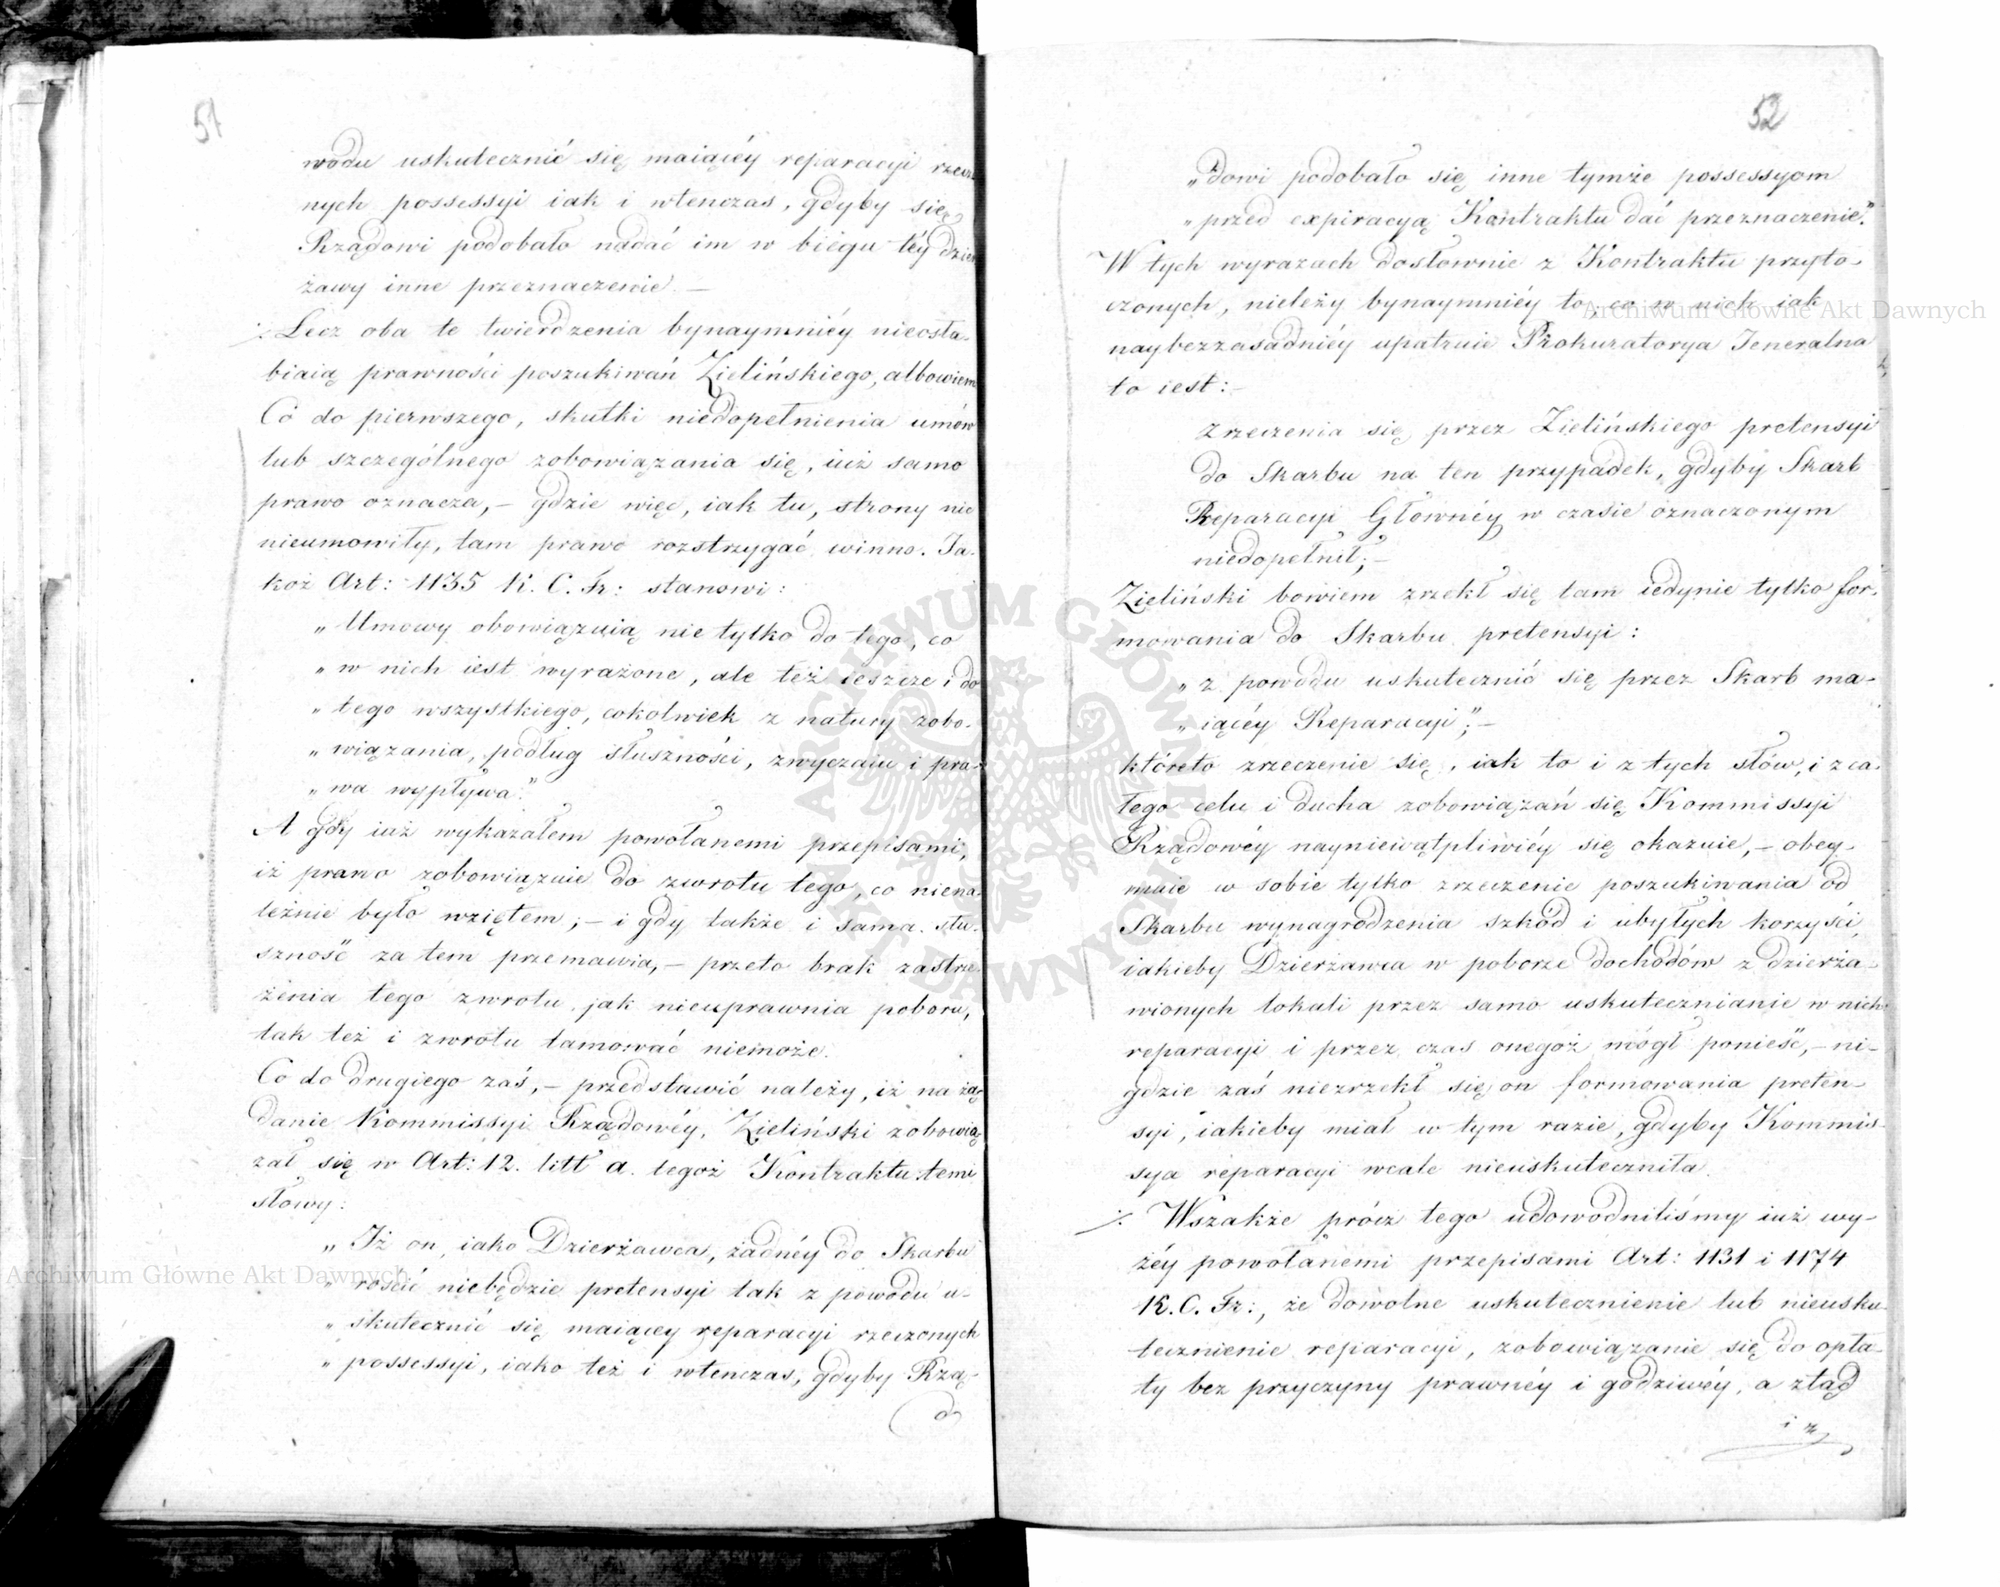 51
wodu uskutecznić się maiącéy reparacyi rzeczo
nych possessyi iak i wtenczas, gdyby się
Rządowi podobało nadać im w biegu téy dzier
żawy inne przeznaczenie. —
⁒ Lecz oba te twierdzenia bynaymniéy nieosła-
biaią prawności poszukiwań Zielińskiego, albowiem
Co do pierwszego, skutki niedopełnienia umów
lub szczególnego zobowiązania się, iuż samo
prawo oznacza, — gdzie więc, iak tu, strony nic
nieumowiły, tam prawo rozstrzygać winno. Ja-
koż Art: 1135 K. C. Fr: stanowi:
„Umowy obowiązuią nie tylko do tego, co
„w nich iest wyrażone, ale też ieszcze i do
„tego wszystkiego, cokolwiek z natury zobo-
„wiązania, podług słuszności, zwyczaiu i pra-
„wa wypływa."
A gdy iuż wykazałem powołanemi przepisami,
iż prawo zobowiązuie do zwrotu tego, co niena-
leżnie było wziętem; — i gdy także i sama słu-
szność za tem przemawia, — przeto brak zastrze-
żenia tego zwrotu jak nieuprawnia poboru,
tak też i zwrotu tamować niemoże.
Co do drugiego zaś, — przedstawić należy, iż na żą-
danie Kommissyi Rządowéy, Zieliński zobowią
zał się w Art: 12. litt a. tegoż Kontraktu temi
słowy:
„Iż on, iako Dzierżawca, żadnéy do Skarbu
„rościć niebędzie pretensyi tak z powodu u-
„skutecznić się maiącey reparacyi rzeczonych
„possessyi, iako też i wtenczas, gdyby Rzą-
d
52
„dowi podobało się inne tymże possessyom
„przed expiracyą Kontraktu dać przeznaczenie."
W tych wyrazach dosłownie z Kontraktu przyto-
czonych, nieleży bynaymniéy to, co w nich iak
naybezzasadniéy upatruie Prokuratorya Jeneralna
to iest: —
zrzeczenia się przez Zielińskiego pretensyi
do Skarbu na ten przypadek, gdyby Skarb
Reparacyi Głównéy w czasie oznaczonym
niedopełnił; —
Zieliński bowiem zrzekł się tam iedynie tylko for-
mowania do Skarbu pretensyi:
„z powodu uskutecznić się przez Skarb ma-
„iącéy Reparacyi"; —
któreto zrzeczenie się, iak to i z tych słów, i z ca-
łego celu i ducha zobowiązań się Kommissyi
Rządowéy nayniewątpliwiéy się okazuie, — obey-
muie w sobie tylko zrzeczenie poszukiwania od
Skarbu wynagrodzenia szkód i ubyłych korzyści,
iakieby Dzierżawca w poborze dochodów z dzierża-
wionych lokali przez samo uskutecznianie w nich
reparacyi i przez czas onegoż mógł ponieść, — ni-
gdzie zaś niezrzekł się on formowania preten-
syi, iakieby miał w tym razie, gdyby Kommis-
sya reparacyi wcale nieuskuteczniła.
⁒ Wszakże prócz tego udowodniliśmy iuż wy-
żéy powołanemi przepisami Art: 1131 i 1174
K. C. Fr:, że dowolne uskutecznienie lub nieusku-
tecznienie reparacyi, zobowiązanie się do opła-
ty bez przyczyny prawnéy i godziwéy, a ztąd
i z
Archiwum Główne Akt Dawnych
Archiwum Główne Akt Dawnych
ARCHIWUM GŁÓWNE AKT DAWNYCH